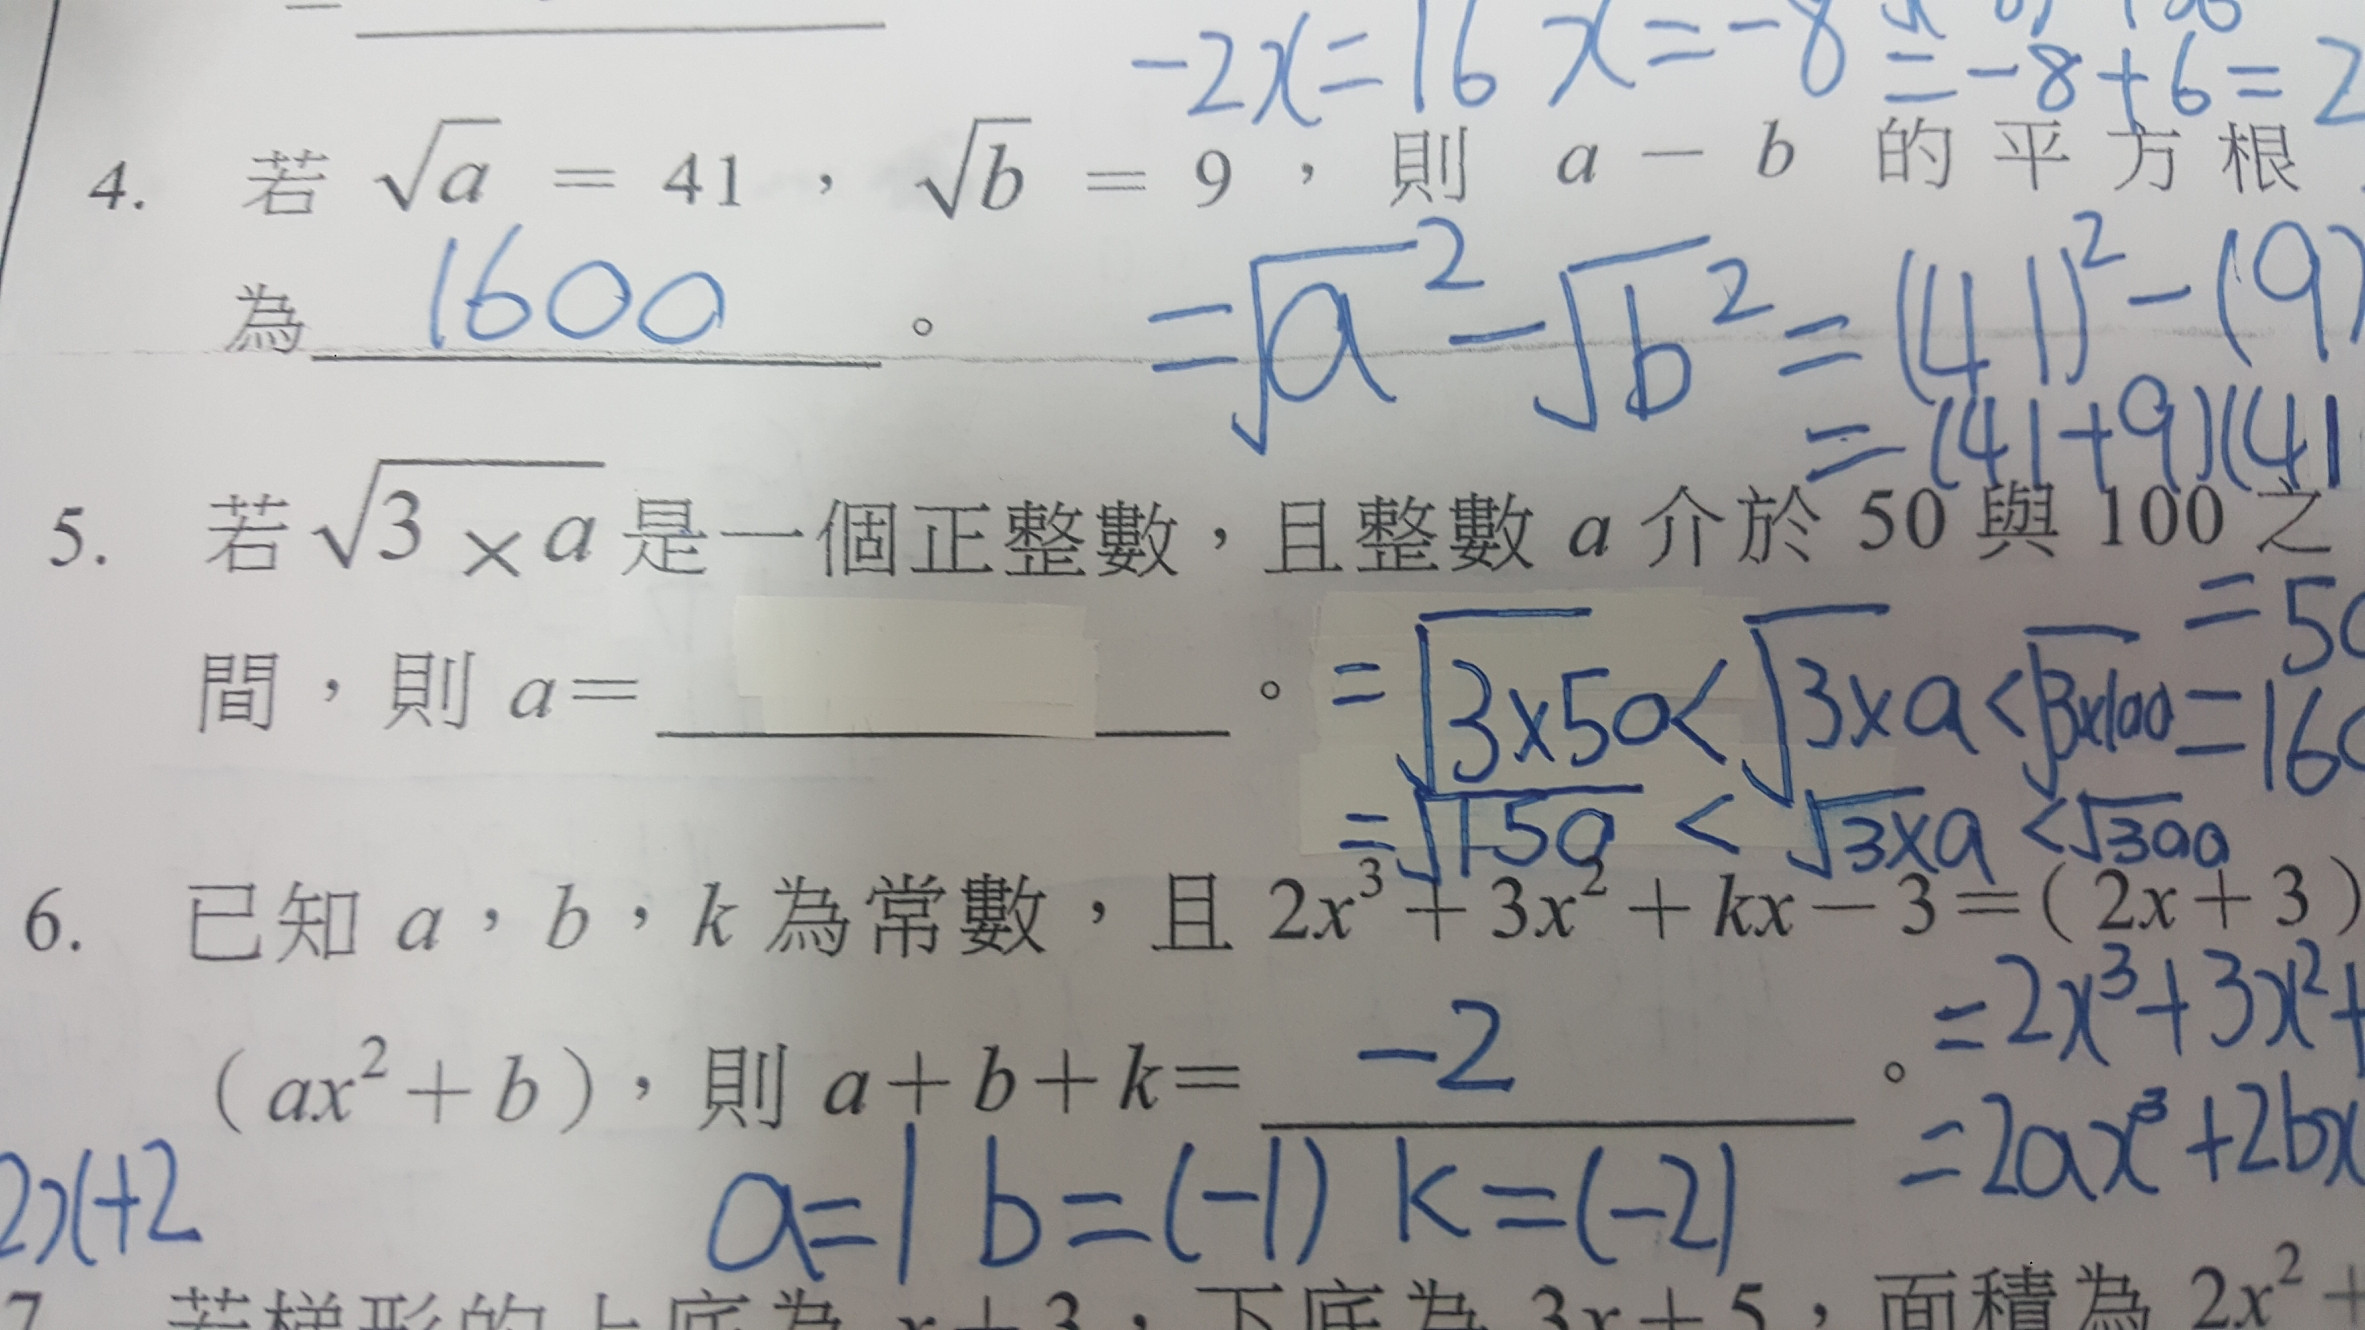 -2x=16 x=-8
=-8+6=2
4. 若 √a = 41，√b = 9，則 a − b 的平方根
為 1600 。
=√a² -√b² = (41)² - (9)
= (41+9)(41
5. 若 √3×a 是一個正整數，且整數 a 介於 50 與 100 之
=50
間，則 a= 。
=√3×50<√3×a<√3×100
=160
=√150 < √3×a <√300
6. 已知 a，b，k 為常數，且 2x³+3x²+kx−3=(2x+3)
=2x³+3x²+
(ax²+b)，則 a+b+k= -2 。
=2ax³+2bx
2x+2
a=1 b=(-1) k=(-2)
7. 若梯形的上底為 x+3，下底為 3x+5，面積為 2x²+